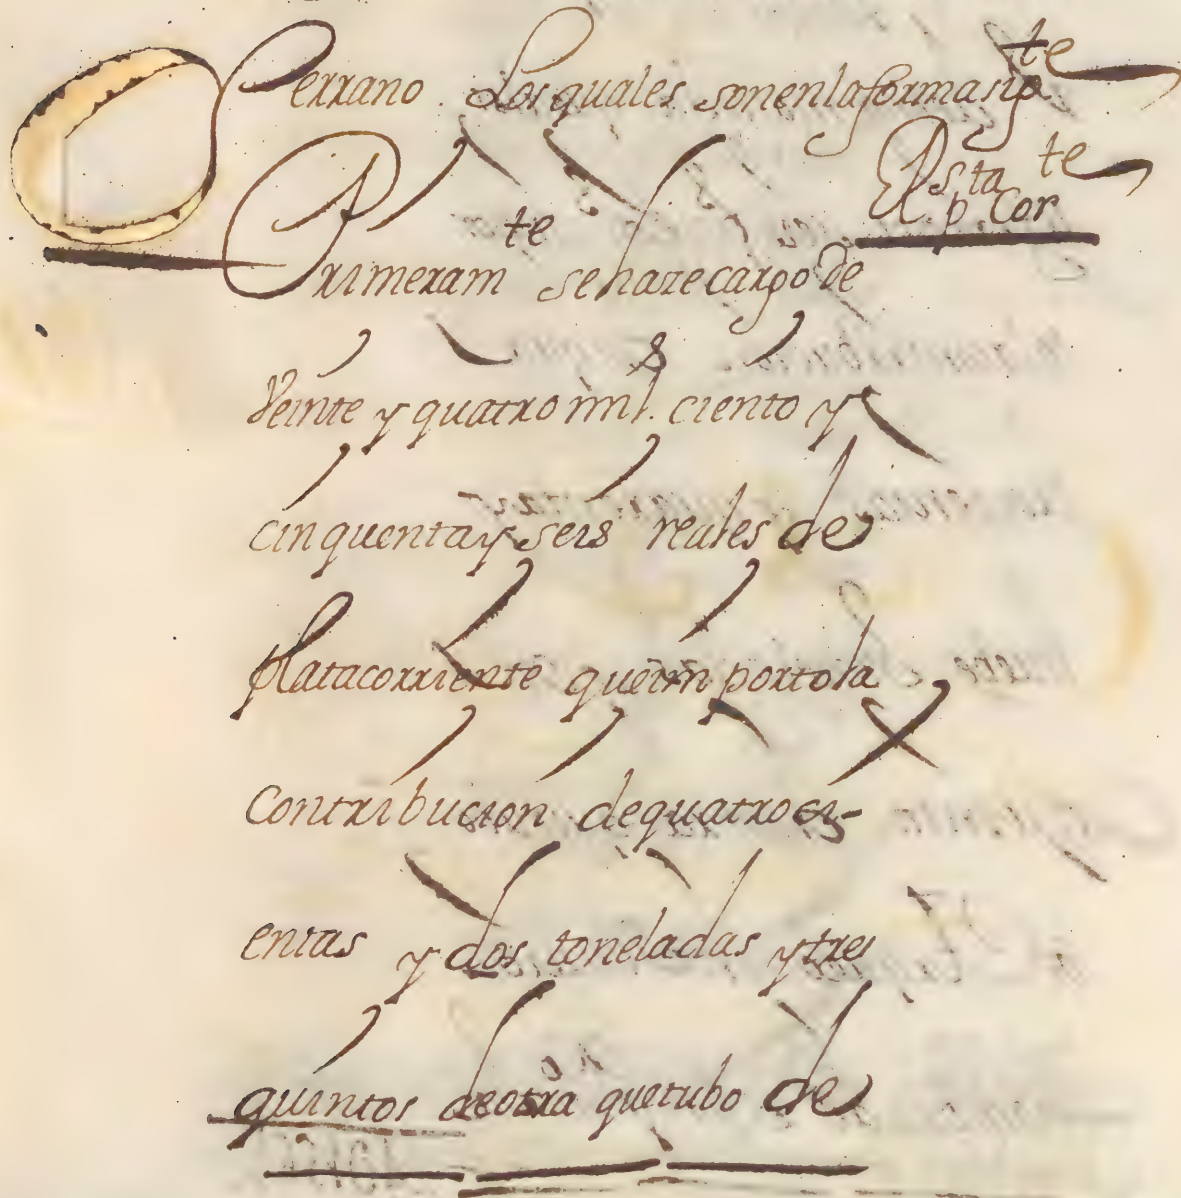 Serrano. Los quales son en la forma sigte
Rs pta Corte
Primeramte se haze cargo de
Veinte y quatro mil. ciento y
cinquenta y seis reales de
plata corriente que importo la
Contribucion de quatroci-
entas y dos toneladas y tres
quintos de otra que tubo de